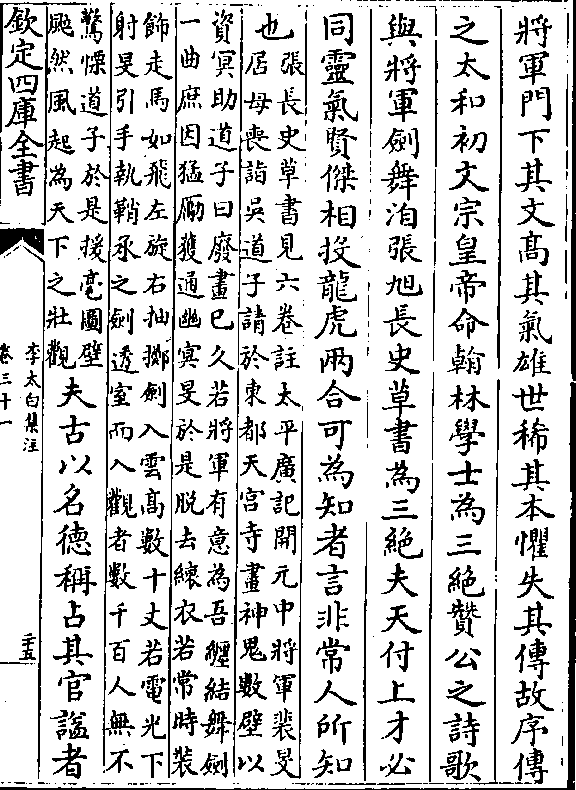 將軍門下其文髙其氣雄世稀其本懼失其傳故序傳
之太和初文宗皇帝命翰林學士為三絶贊公之詩歌
與將軍劍舞洎張旭長史草書為三絶夫天付上才必
同靈氣賢傑相投龍虎兩合可為知者言非常人所知
也張長史草書見六卷註太平廣記開元中將軍裴旻
居母喪詣吳道子請於東都天宫寺畫神鬼數壁以
資冥助道子曰廢畫已久若將軍有意為吾纒結舞劍
一曲庶因猛厲獲通幽冥旻於是脱去縗衣若常時裝
飾走馬如飛左旋右抽擲劍入雲髙數十丈若電光下
射旻引手執鞘承之劍透室而入觀者數千百人無不
驚慄道子於是援毫圖壁
颯然風起為天下之壯觀夫古以名德稱占其官諡者
欽定四庫全書
李太白集注
卷三十一
二十五